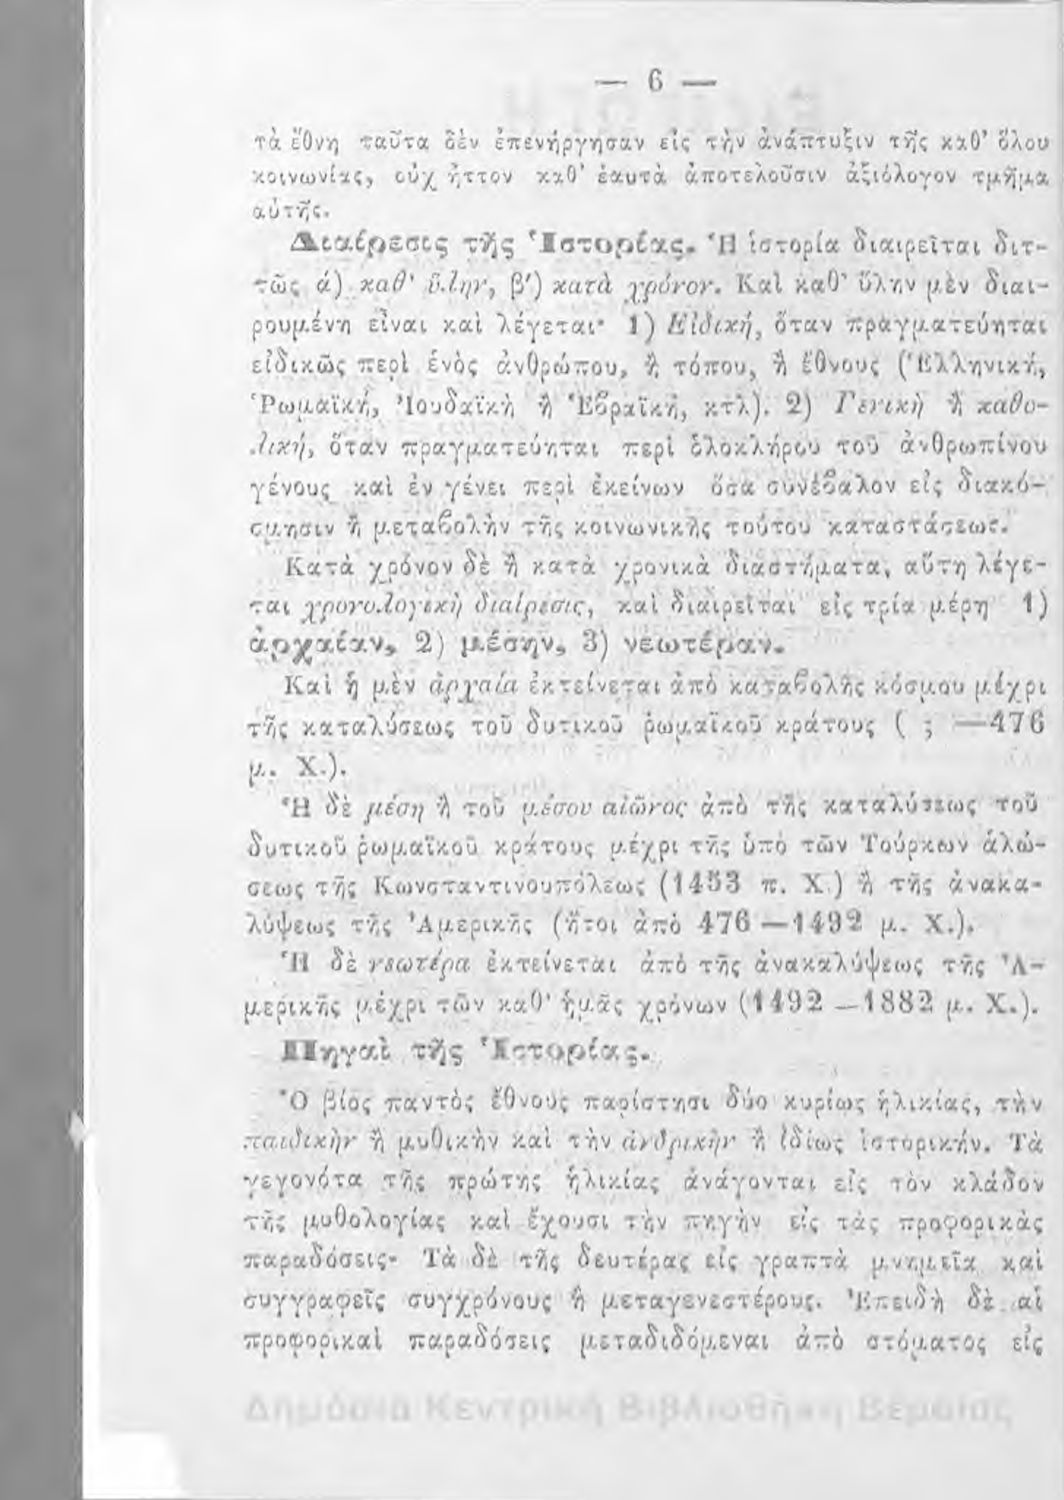 — 6 —
τὰ ἔθνη ταῦτα δὲν ἐπενήργησαν εἰς τὴν ἀνάπτυξιν τῆς καθ’ ὅλου
κοινωνίας, οὐχ ἧττον καθ’ ἑαυτὰ ἀποτελοῦσιν ἀξιόλογον τμῆμα
αὐτῆς.
Διαίρεσις τῆς Ἱστορίας. Ἡ ἱστορία διαιρεῖται διτ-
τῶς ά) καθ’ ὕλην, β′) κατὰ χρόνον. Καὶ καθ’ ὕλην μὲν διαι-
ρουμένη εἶναι καὶ λέγεται· 1) Εἰδική, ὅταν πραγματεύηται
εἰδικῶς περὶ ἑνὸς ἀνθρώπου, ἢ τόπου, ἢ ἔθνους (Ἑλληνική,
Ῥωμαϊκή, Ἰουδαϊκὴ ἢ Ἑβραϊκή, κτλ). 2) Γενικὴ ἢ καθο-
λική, ὅταν πραγματεύηται περὶ ὁλοκλήρου τοῦ ἀνθρωπίνου
γένους καὶ ἐν γένει περὶ ἐκείνων ὅσα συνέβαλον εἰς διακό-
σμησιν ἢ μεταβολὴν τῆς κοινωνικῆς τούτου καταστάσεως.
Κατὰ χρόνον δὲ ἢ κατὰ χρονικὰ διαστήματα, αὕτη λέγε-
ται χρονολογικὴ διαίρεσις, καὶ διαιρεῖται εἰς τρία μέρη 1)
ἀρχαίαν, 2) μέσην, 3) νεωτέραν.
Καὶ ἡ μὲν ἀρχαία ἐκτείνεται ἀπὸ καταβολῆς κόσμου μέχρι
τῆς καταλύσεως τοῦ δυτικοῦ ῥωμαϊκοῦ κράτους ( ; —476
μ. Χ.).
Ἡ δὲ μέση ἢ τοῦ μέσου αἰῶνος ἀπὸ τῆς καταλύσεως τοῦ
δυτικοῦ ῥωμαϊκοῦ κράτους μέχρι τῆς ὑπὸ τῶν Τούρκων ἁλώ-
σεως τῆς Κωνσταντινουπόλεως (1453 π. Χ.) ἢ τῆς ἀνακα-
λύψεως τῆς Ἀμερικῆς (ἤτοι ἀπὸ 476 —1492 μ. Χ.).
Ἡ δὲ νεωτέρα ἐκτείνεται ἀπὸ τῆς ἀνακαλύψεως τῆς Ἀ-
μερικῆς μέχρι τῶν καθ’ ἡμᾶς χρόνων (1492 —1882 μ. Χ.).
Πηγαὶ τῆς Ἱστορίας.
Ὁ βίος παντὸς ἔθνους παρίστησι δύο κυρίως ἡλικίας, τὴν
παιδικὴν ἢ μυθικὴν καὶ τὴν ἀνδρικὴν ἢ ἰδίως ἱστορικήν. Τὰ
γεγονότα τῆς πρώτης ἡλικίας ἀνάγονται εἰς τὸν κλάδον
τῆς μυθολογίας καὶ ἔχουσι τὴν πηγὴν εἰς τὰς προφορικὰς
παραδόσεις· Τὰ δὲ τῆς δευτέρας εἰς γραπτὰ μνημεῖα καὶ
συγγραφεῖς συγχρόνους ἢ μεταγενεστέρους. Ἐπειδὴ δὲ αἱ
προφορικαὶ παραδόσεις μεταδιδόμεναι ἀπὸ στόματος εἰς
Δημόσια Κεντρική Βιβλιοθήκη Βέροιας